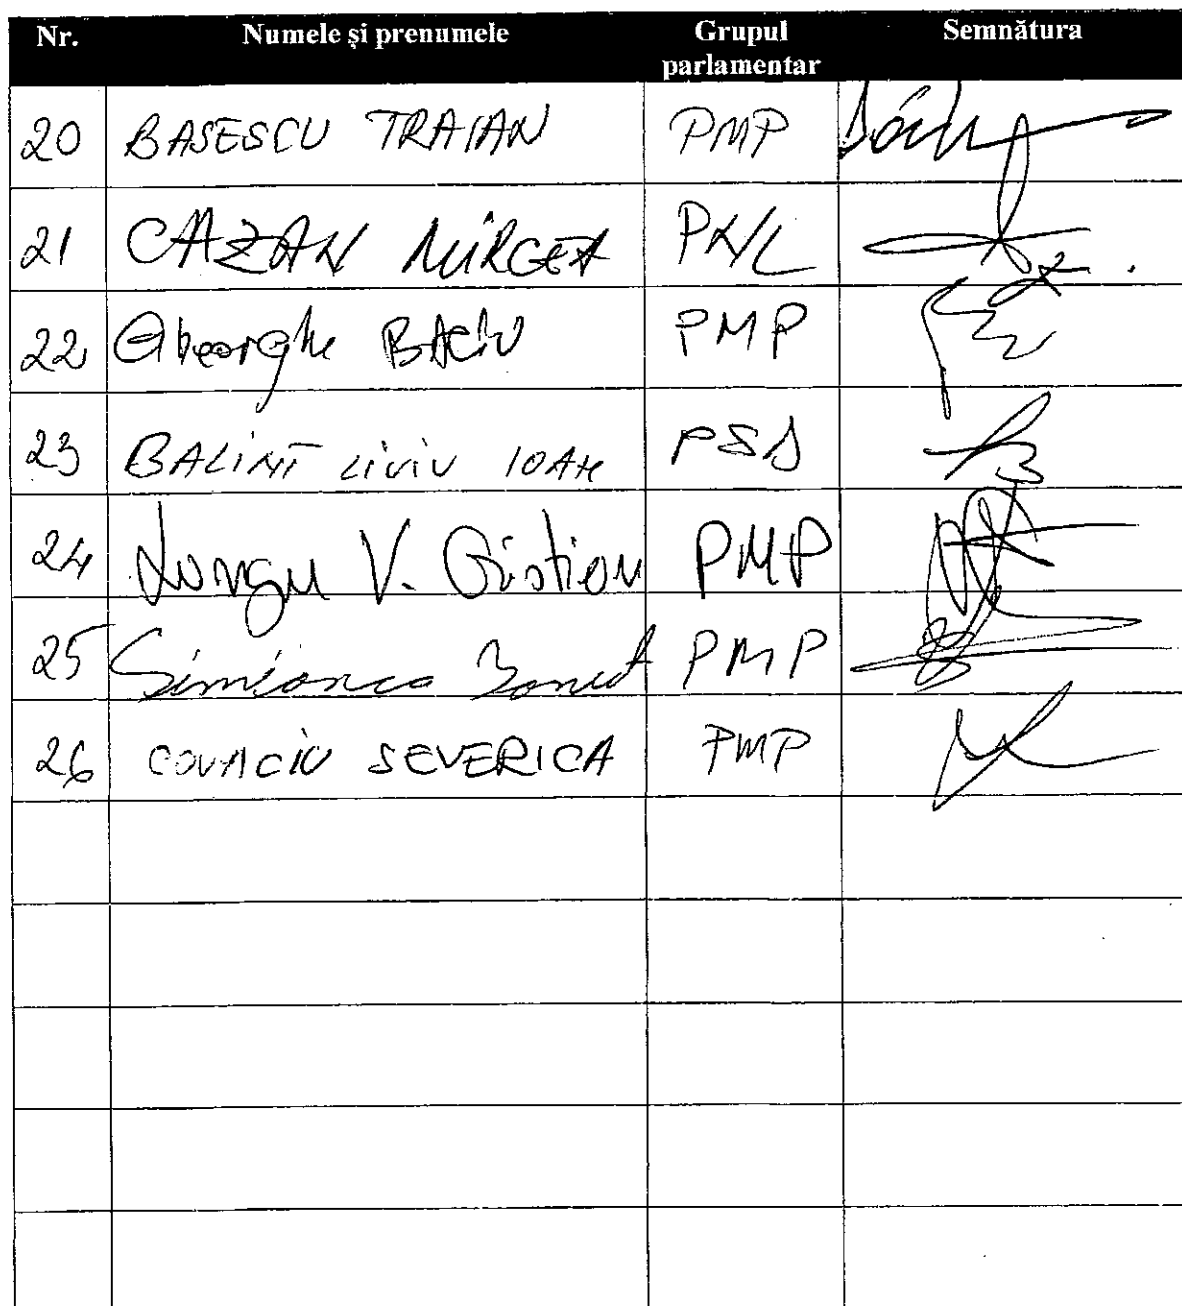 Nr. Numele și prenumele Grupul parlamentar Semnătura
20 BASESCU TRAIAN PMP
21 CAZAN MIRCEA PNL
22 Gheorghe BACIU PMP
23 BALINT LIVIU IOAN PSD
24 Lungu V. Cristian PMP
25 Simionca Ionut PMP
26 COVACIU SEVERICA PMP